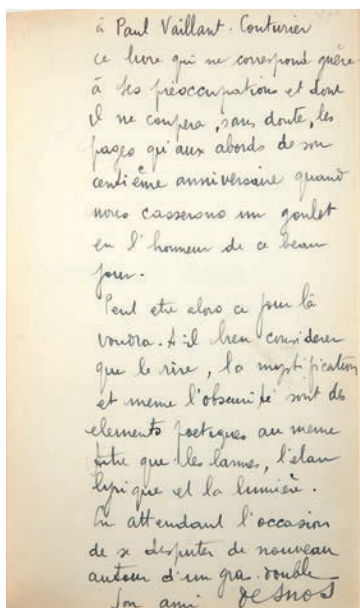 à Paul Vaillant-Couturier
ce livre qui ne correspond guère
à ses préoccupations et dont
il ne coupera, sans doute, les
pages qu'aux abords de son
centième anniversaire quand
nous casserons un goulot
en l'honneur de ce beau
jour.
Peut etre alors ce jour là
voudra-t-il bien considerer
que le rire, la mystification
et meme l'obscurité sont des
elements poetiques au meme
titre que les larmes, l'elan
lyrique et la lumière.
En attendant l'occasion
de se disputer de nouveau
autour d'un gra-double
son ami Desnos